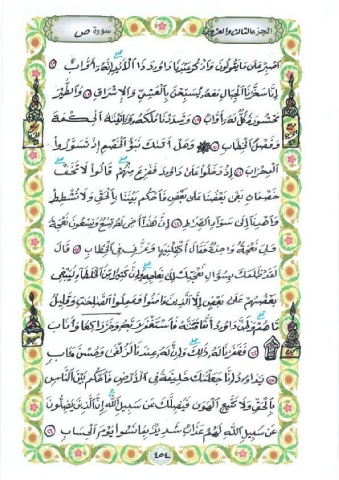 الجزء الثالث والعشرون
سورة ص
اصبر على ما يقولون واذكر عبدنا داوود ذا الأيد إنه أواب
إنا سخرنا الجبال معه يسبحن بالعشي والإشراق والطير
محشورة كل له أواب وشددنا ملكه وآتيناه الحكمة
وفصل الخطاب وهل أتاك نبأ الخصم إذ تسوروا
المحراب إذ دخلوا على داوود ففزع منهم قالوا لا تخف
خصمان بغى بعضنا على بعض فاحكم بيننا بالحق ولا تشطط
واهدنا إلى سواء الصراط إن هذا أخي له تسع وتسعون نعجة
ولي نعجة واحدة فقال أكفلنيها وعزني في الخطاب قال
لقد ظلمك بسؤال نعجتك إلى نعاجه وإن كثيرا من الخلطاء ليبغي
بعضهم على بعض إلا الذين ءامنوا وعملوا الصالحات وقليل
ما هم وظن داوود أنما فتناه فاستغفر ربه وخر راكعا وأناب
فغفرنا له ذلك وإن له عندنا لزلفى وحسن مآب
يا داوود إنا جعلناك خليفة في الأرض فاحكم بين الناس
بالحق ولا تتبع الهوى فيضلك عن سبيل الله إن الذين يضلون
عن سبيل الله لهم عذاب شديد بما نسوا يوم الحساب
٤٥٤